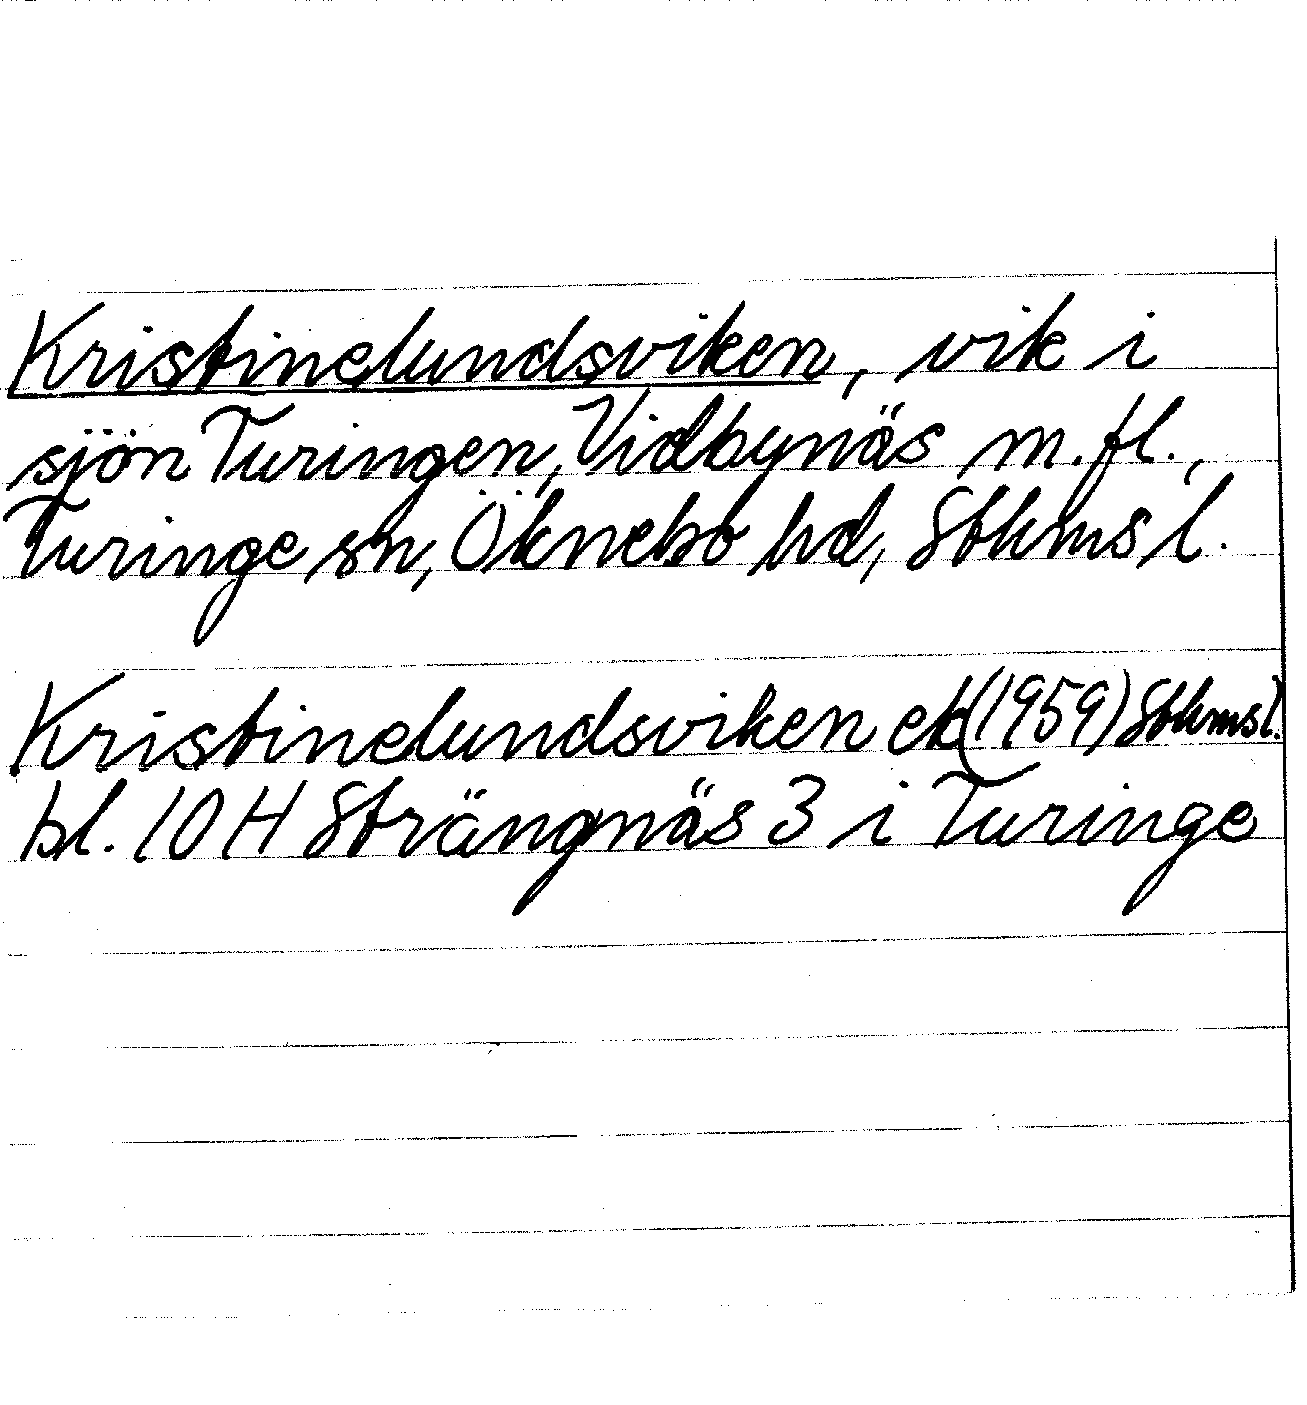 Kristinelundsviken, vik i
sjön Turingen, Vidbynäs m.fl.,
Turinge sn, Öknebo hd, Sthms l.
Kristinelundsviken ek (1959) Sthms l.
bl. 10 H Strängnäs 3 i Turinge